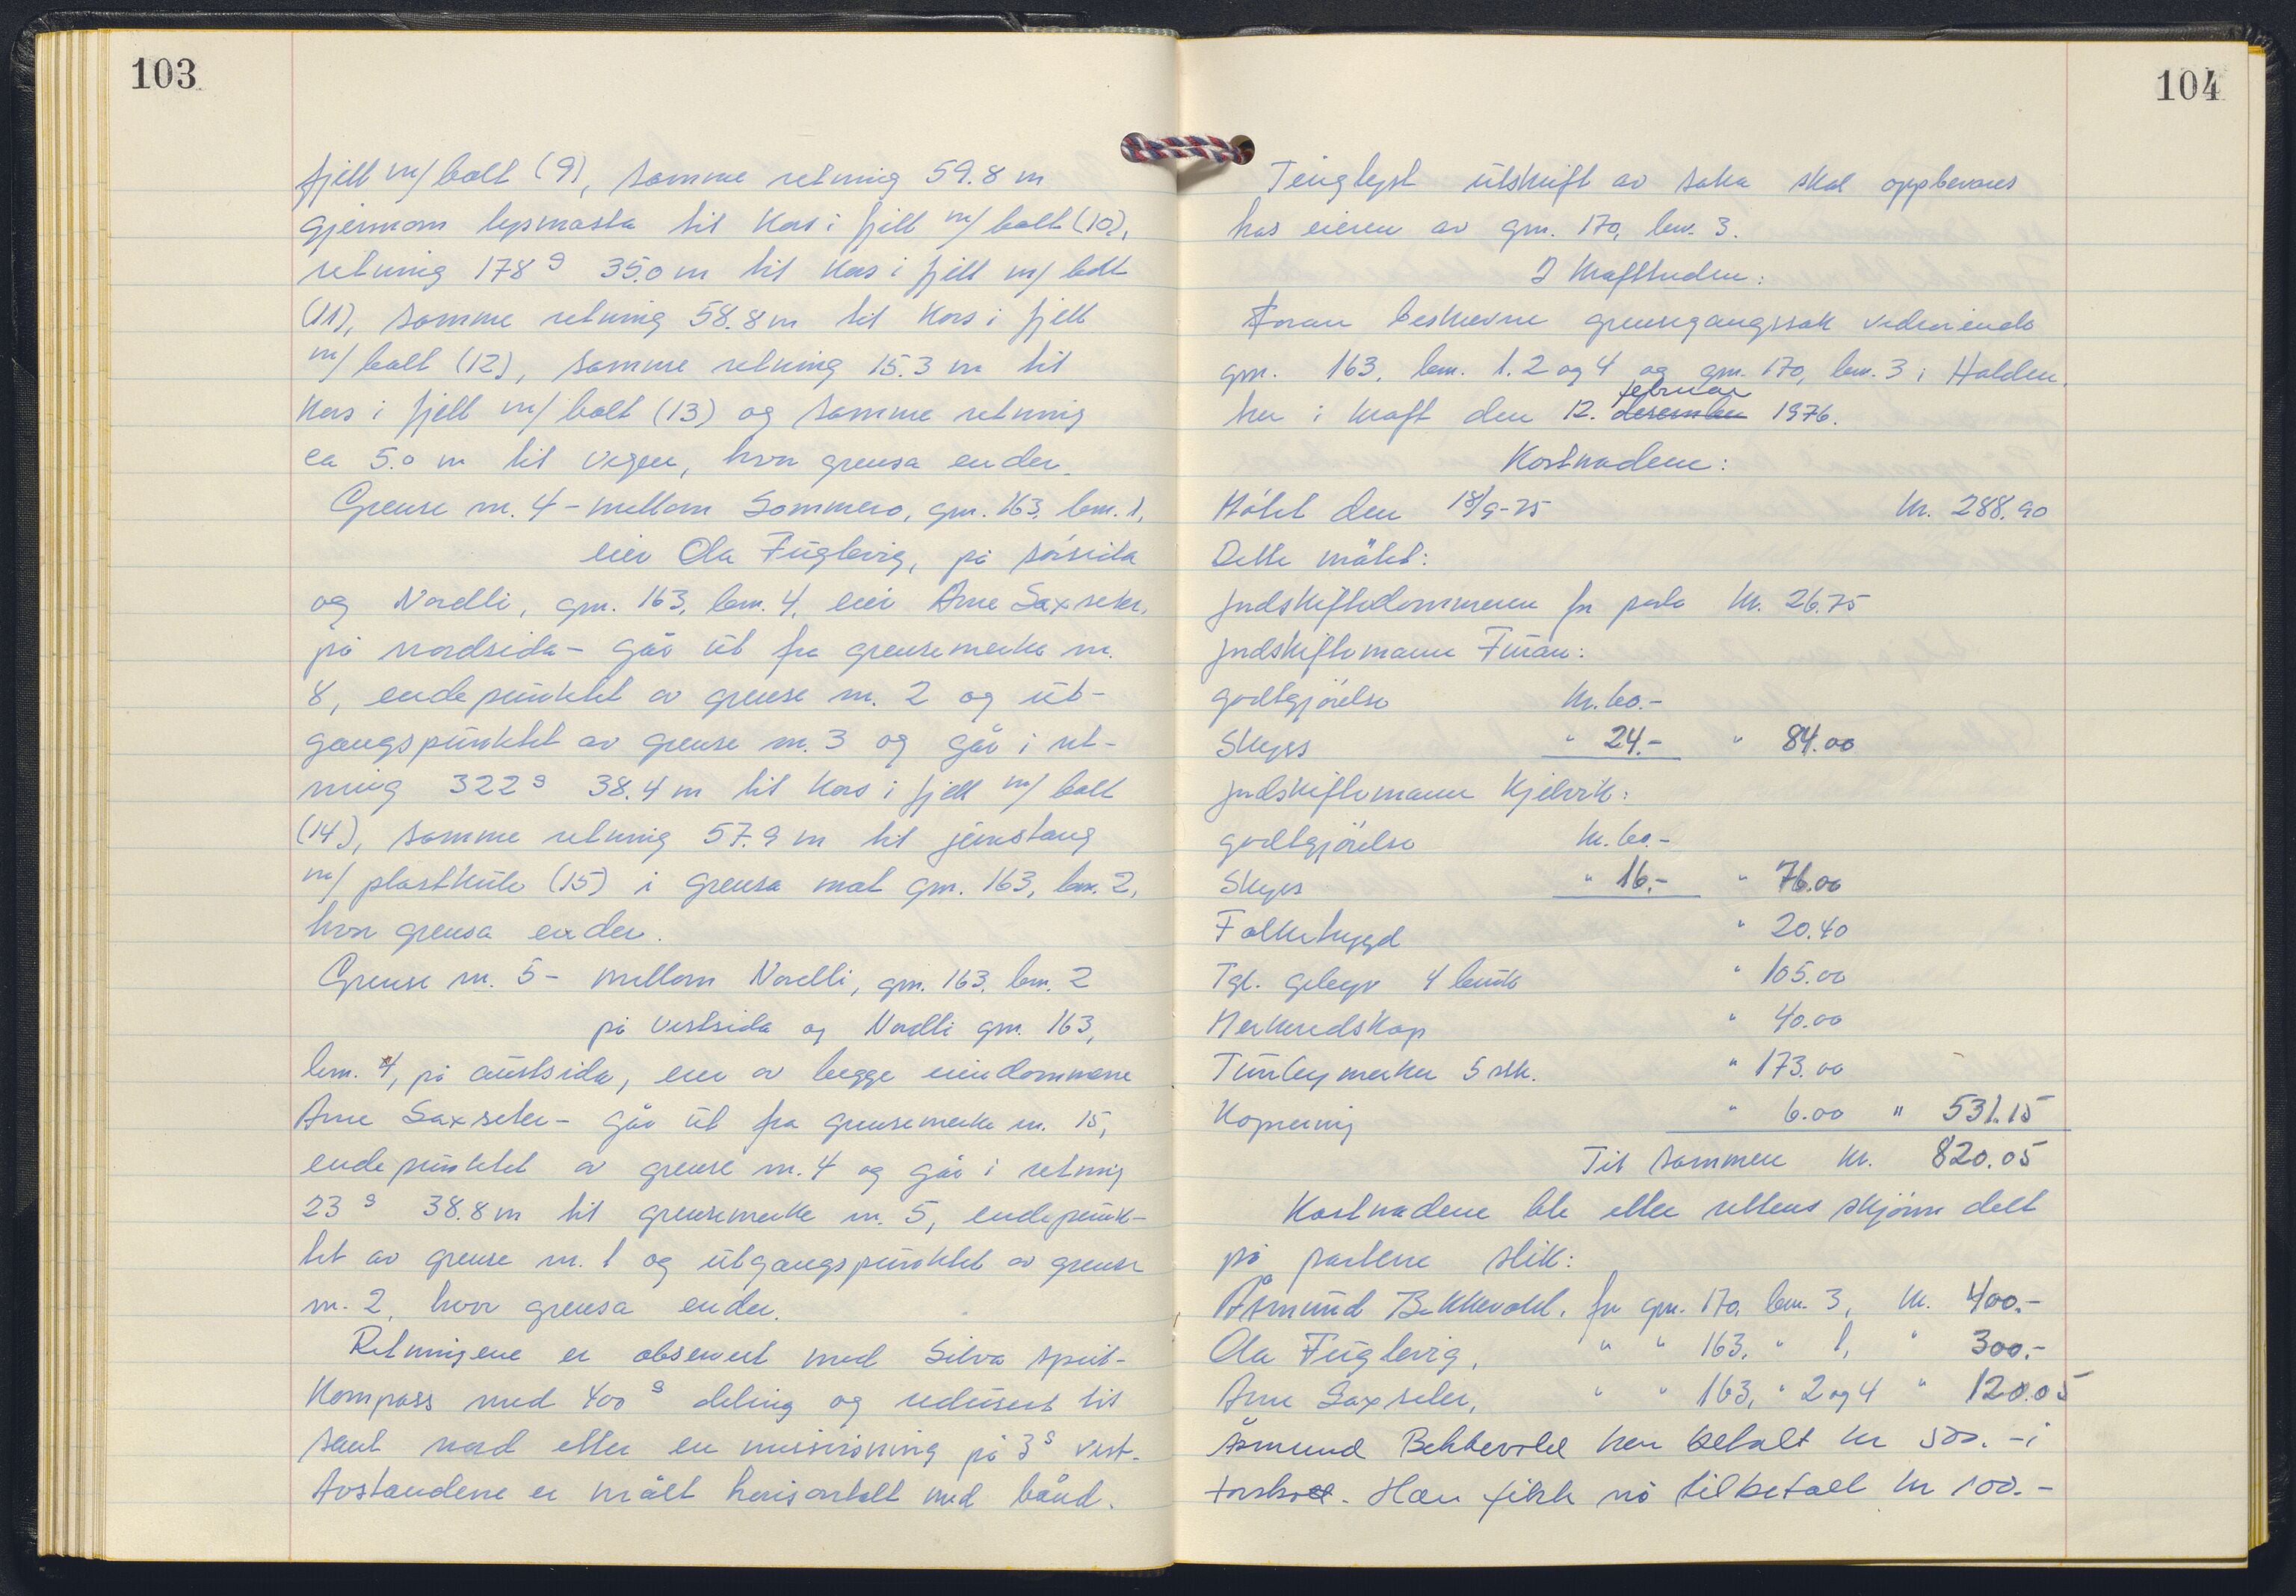 103
fjell m/bolt (9), samme retning 59.8 m
gjennom lysmasta til kors i fjell m/bolt (10),
retning 178 g 35.0 m til kors i fjell m/bolt
(11), samme retning 58.8 m til kors i fjell
m/bolt (12), samme retning 15.3 m til
kors i fjell m/bolt (13) og samme retning
ca 5.0 m til vegen, hvor grensa ender.
Grense nr. 4 - mellom Sommero, gnr. 163, bnr. 1,
eier Ola Fuglevig, på sørsida
og Nordli, gnr. 163, bnr. 4, eier Arne Saxseter,
på nordsida - går ut fra grensemerke nr.
8, endepunktet av grense nr. 2 og ut-
gangspunktet av grense nr. 3 og går i ret-
ning 322 g 38.4 m til kors i fjell m/bolt
(14), samme retning 57.9 m til jernstang
m/plastkule (15) i grensa mot gnr. 163, bnr. 2,
hvor grensa ender.
Grense nr. 5 - mellom Nordli, gnr. 163, bnr. 2
på vestsida og Nordli gnr. 163,
bnr. 4, på austsida, eier av begge eiendommene
Arne Saxseter - går ut fra grensemerke nr. 15,
endepunktet av grense nr. 4 og går i retning
23 g 38.8 m til grensemerke nr. 5, endepunk-
tet av grense nr. 1 og utgangspunktet av grense
nr. 2, hvor grensa ender.
Retningene er observert med Silva speil-
kompass med 400 g deling og redusert til
sant nord etter en misvisning på 3 g vest.
Avstandene er målt horisontalt med bånd.
104
Tinglyst utskrift av saka skal oppbevares
hos eieren av gnr. 170, bnr. 3.
I krafttreden:
Foran beskrevne grensegangssak vedrørende
gnr. 163, bnr. 1, 2 og 4 og gnr. 170, bnr. 3 i Halden,
februar
trer i kraft den 12. desember 1976.
Kostnadene:
Møtet den 18/9-75 kr. 288.90
Dette møtet:
Jordskiftedommeren for porto kr. 26.75
Jordskiftemann Furan:
godtgjørelse kr. 60.-
Skyss " 24.- " 84.00
Jordskiftemann Kjelvik:
godtgjørelse kr. 60.-
Skyss " 16.- " 76.00
Folketrygd " 20.40
Tgl. gebyr 4 bruk " 105.00
Merkeredskap " 40.00
Tunley merker 5 stk. " 173.00
Kopiering " 6.00 " 531.15
Til sammen kr. 820.05
Kostnadene ble etter rettens skjønn delt
på partene slik:
Åsmund Bekkevold, for gnr. 170, bnr. 3, kr. 400.-
Ola Fuglevig, " " 163, " 1, " 300.-
Arne Saxseter, " " 163, " 2 og 4 " 120.05
Åsmund Bekkevold har betalt kr 500.- i
forskott. Han fikk nå tilbetalt kr 100.-